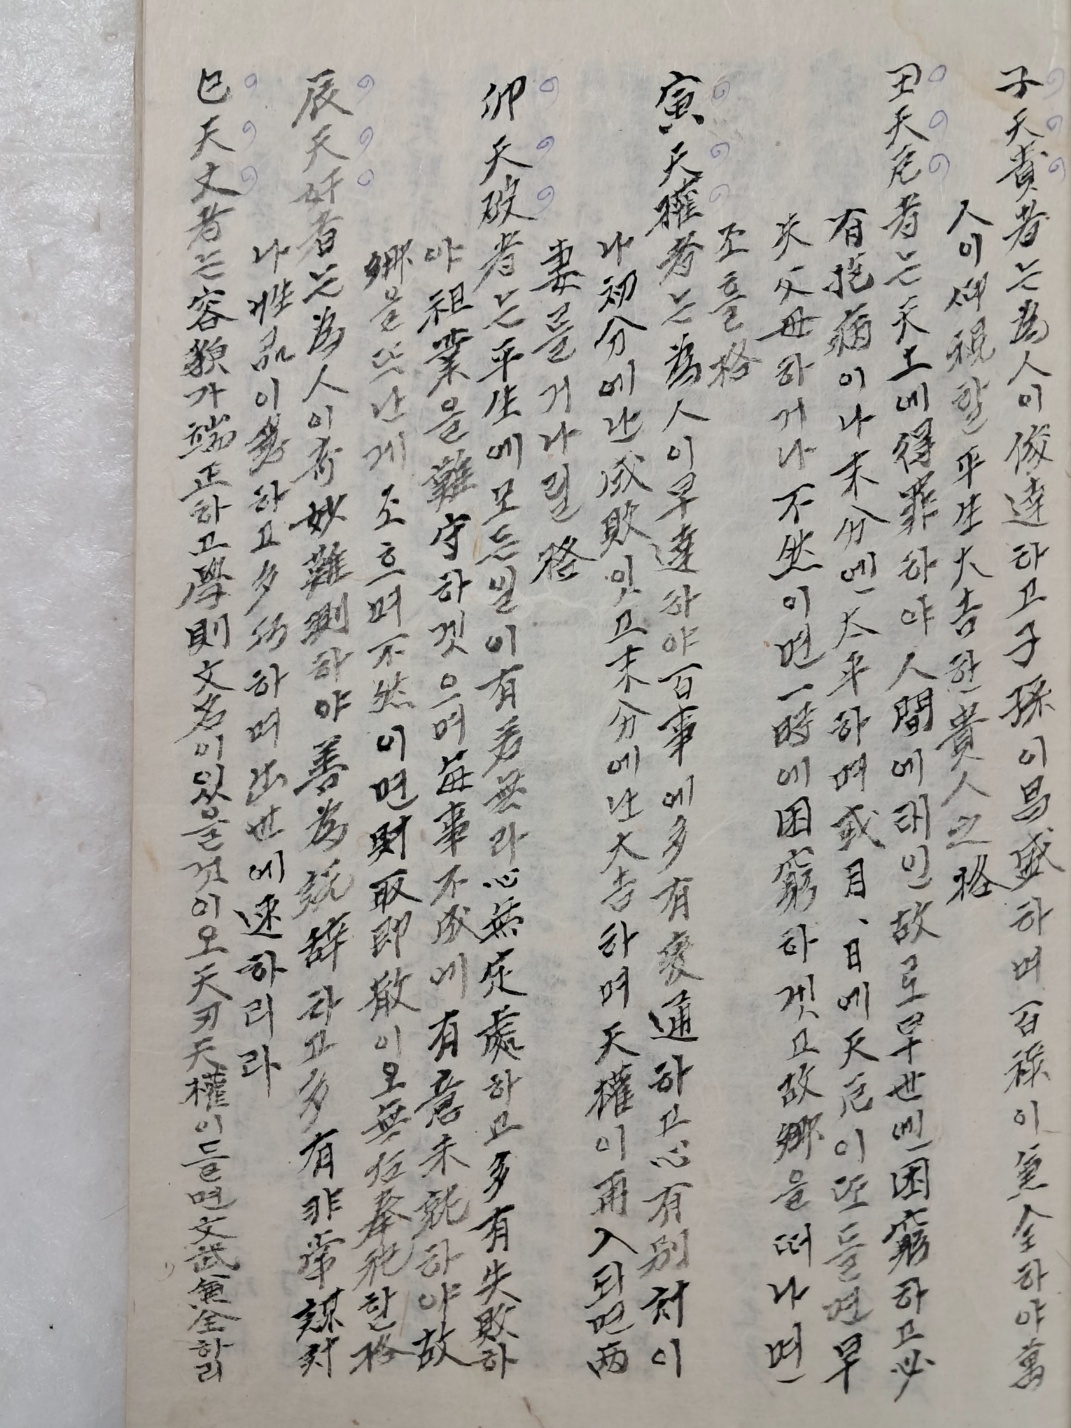 子天貴者는爲人이俊達하고子孫이昌盛하며百祿이兼全하야萬
人이仰視할平生大吉한貴人之格
丑天厄者는天上에得罪하야人間에태인故로早世엔困窮하고必
有抱病이나末分엔太平하며或月、日에天厄이또들면早
失父母하거나不然이면一時에困窮하겟고故鄕을떠나면
조흘格
寅天權者는爲人이早達하야百事에多有変通하고心有別計이
나初分에난成敗잇고末分에난大吉하며天權이再入되면兩
妻를거나릴格
卯天破者는平生에모든일이有若無라心無定處하고多有失敗하
야祖業을難守하겟으며每事不成에有意未就하야故
鄕을뜨난게조흐며不然이면財取卽散이오無后奉祀한格
辰天奸者는爲人이奇妙難測하야善爲說辞라고多有非常謀計
나性品이勇하고多 하며出世에速하리라
巳天文者는容貌가端正하고學則文名이잇을것이오天刃天權이들면文武兼全하리